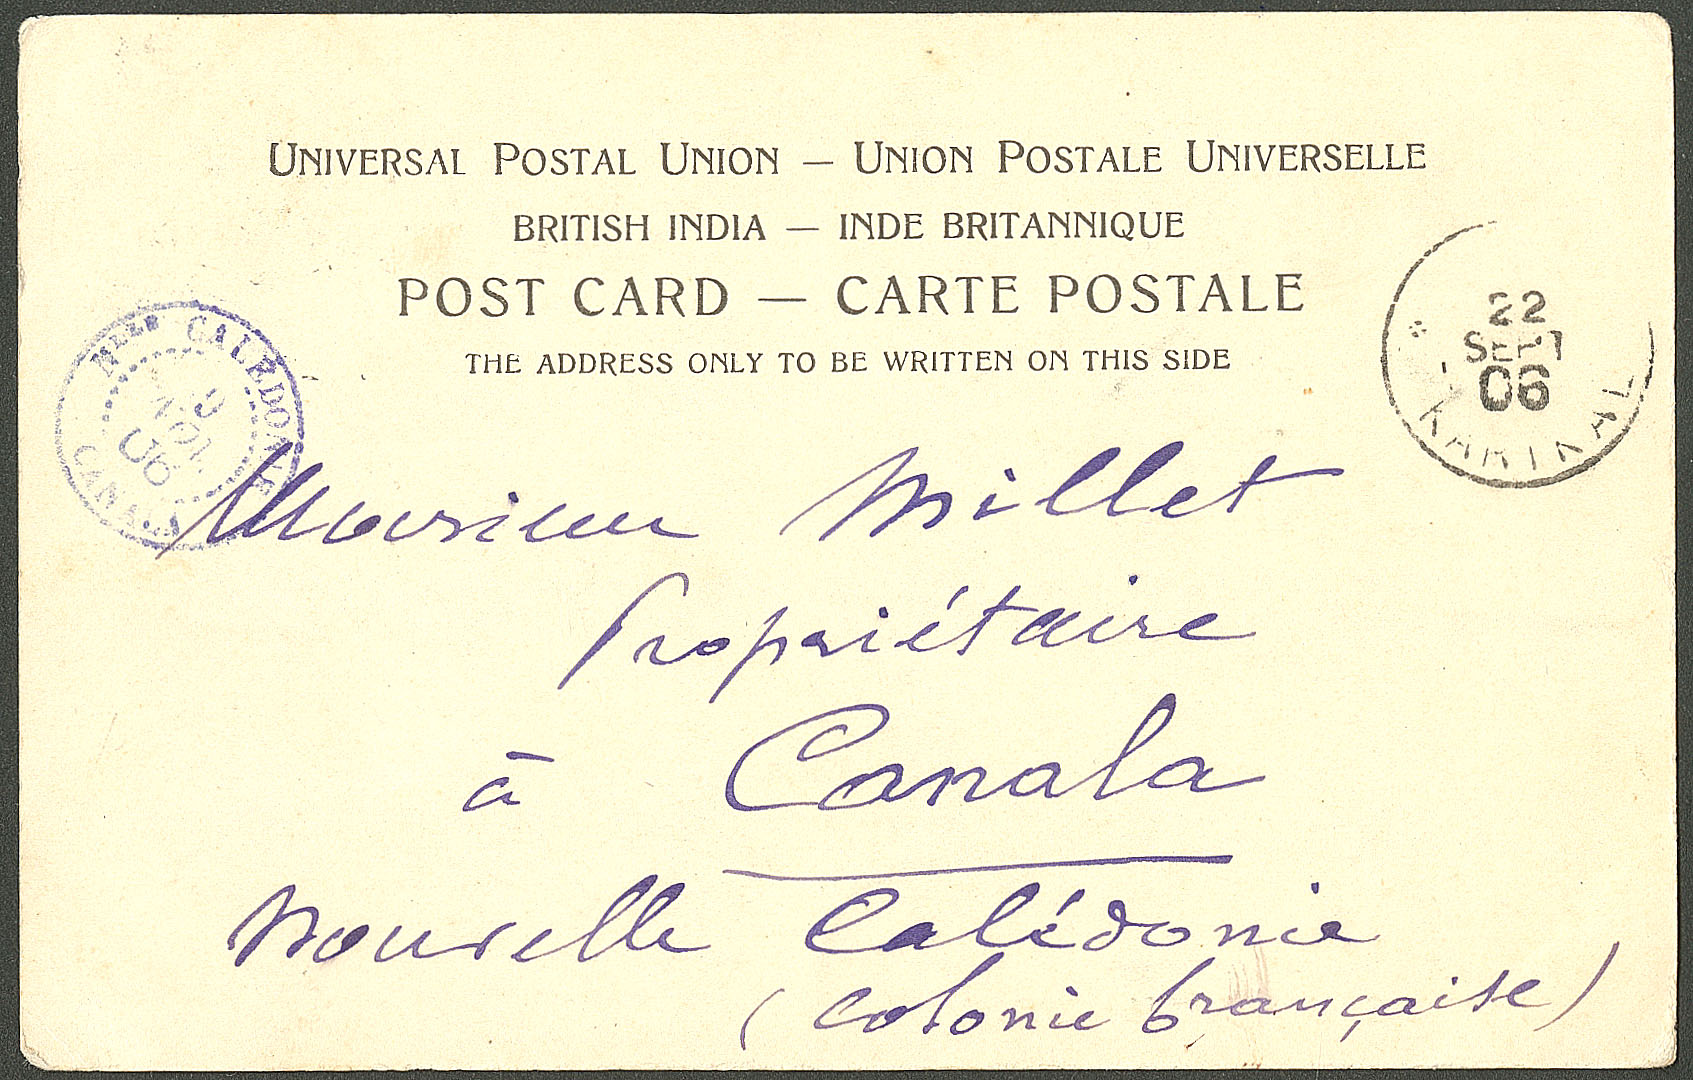 UNIVERSAL POSTAL UNION — UNION POSTALE UNIVERSELLE
BRITISH INDIA — INDE BRITANNIQUE
POST CARD — CARTE POSTALE
THE ADDRESS ONLY TO BE WRITTEN ON THIS SIDE
Nᴸᴸᴱ CALEDONIE
9
NOV.
06
CANALA
22
SEPT
06
KARIKAL
Monsieur Millet
Propriétaire
à Canala
Nouvelle Calédonie
(Colonie française)